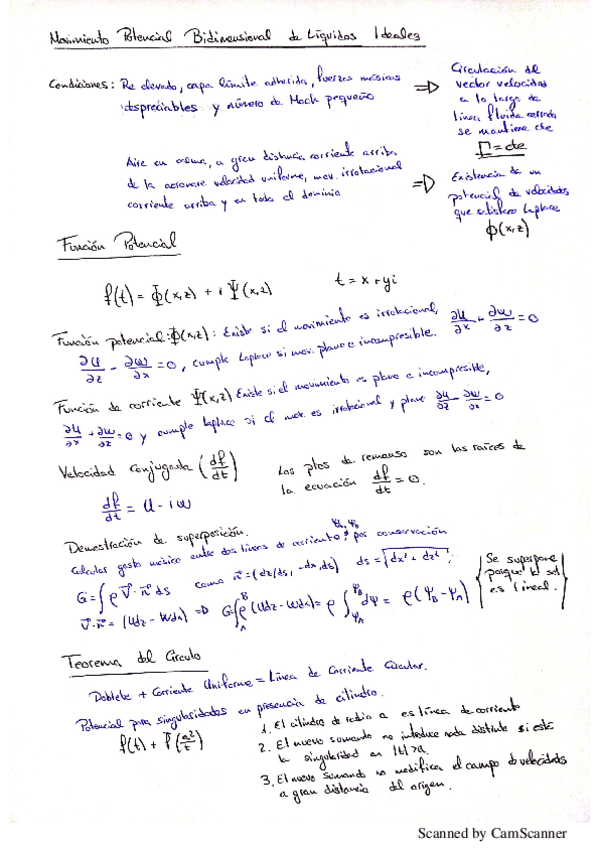 Movimiento Potencial Bidimensional de Líquidos Ideales
Condiciones: Re elevado, capa límite adherida, fuerzas másicas
despreciables y número de Mach pequeño
⇒ Circulación del
vector velocidad
a lo largo de
línea fluida cerrada
se mantiene cte
Γ = cte
Aire en calma, a gran distancia corriente arriba
de la aeronave velocidad uniforme, mov. irrotacional
corriente arriba y en todo el dominio
⇒ Existencia de un
potencial de velocidades,
que satisface Laplace
ϕ(x,z)
Función Potencial
f(t) = Φ(x,z) + i Ψ(x,z) t = x + yi
Función potencial: Φ(x,z): Existe si el movimiento es irrotacional,
∂u/∂z - ∂w/∂x = 0, cumple Laplace si mov. plano e incompresible. ∂u/∂x + ∂w/∂z = 0
Función de corriente Ψ(x,z) Existe si el movimiento es plano e incompresible,
∂u/∂x + ∂w/∂z = 0 y cumple Laplace si el mov. es irrotacional y plano ∂u/∂z - ∂w/∂x = 0
Velocidad conjugada (df/dt) Los ptos de remanso son las raíces de
la ecuación df/dt = 0.
df/dt = u - iw
Demostración de superposición. Ψa, Ψb
Calcular gasto másico entre dos líneas de corriente, por conservación
G = ∫ρ V·n ds como n = (dz/ds, -dx/ds) ds = √(dx² + dz²);
V·n = (udz - wdx) ⇒ G = ∫ρ(udz - wdx) = ρ∫dψ = ρ(ΨB - ΨA)
Se superpone
porque la sol
es lineal.
Teorema del Círculo
Doblete + Corriente Uniforme = Línea de Corriente Circular.
Potencial para singularidades en presencia de cilindro.
f(t) + f̄(a²/t)
1. El cilindro de radio a es línea de corriente
2. El nuevo sumando no introduce nada distinto si está
la singularidad en |t|>a.
3. El nuevo sumando no modifica el campo de velocidades
a gran distancia del origen.
Scanned by CamScanner